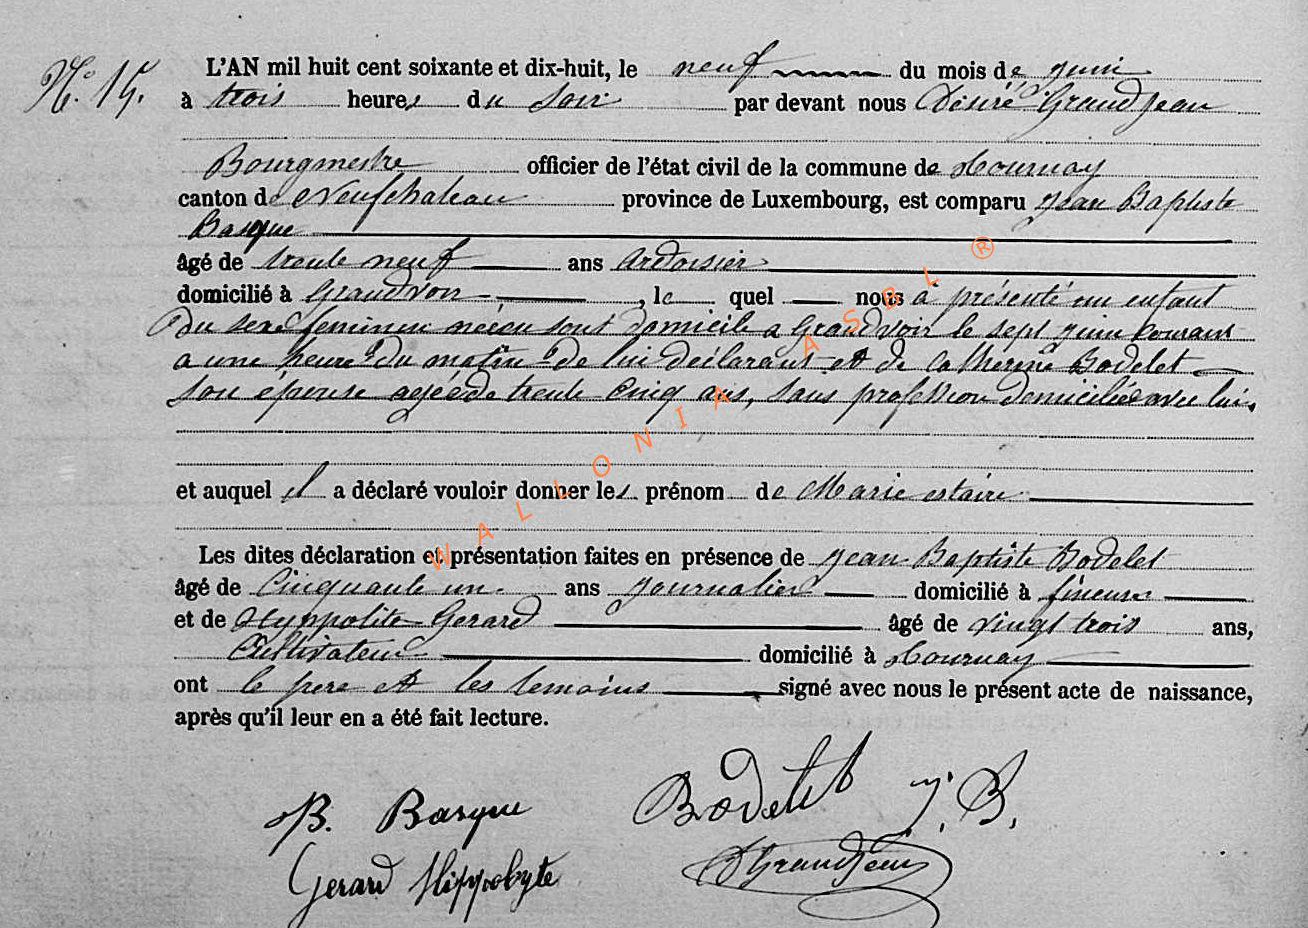 N.º 15.
L'AN mil huit cent soixante et dix-huit, le neuf du mois de juin
à trois heures du soir par devant nous Désiré Grandjean
Bourgmestre officier de l'état civil de la commune de Tournay
canton de Neufchateau province de Luxembourg, est comparu Jean Baptiste
Basque
âgé de trente neuf ans Ardoisier
domicilié à Grandvoir, le quel nous a présenté un enfant
du sexe feminin né en sont domicile a Grandvoir le sept juin courant
a une heure du matin de lui déclarant et de Catherine Bodelet
son épouse agée de trente cinq ans, sans profession domiciliée avec lui.
et auquel il a déclaré vouloir donner les prénom de Marie
Les dites déclaration et présentation faites en présence de Jean Baptiste Bodelet
âgé de Cinquante un ans Journalier domicilié à fineuse
et de Hyppolite Gerard âgé de vingt trois ans,
Cultivateur domicilié à Tournay
ont le pere et les temoins signé avec nous le présent acte de naissance,
après qu'il leur en a été fait lecture.
JB. Basque Bodelet J. B.
Gerard Hippolyte D Grandjean
WALLONIA ASBL ®